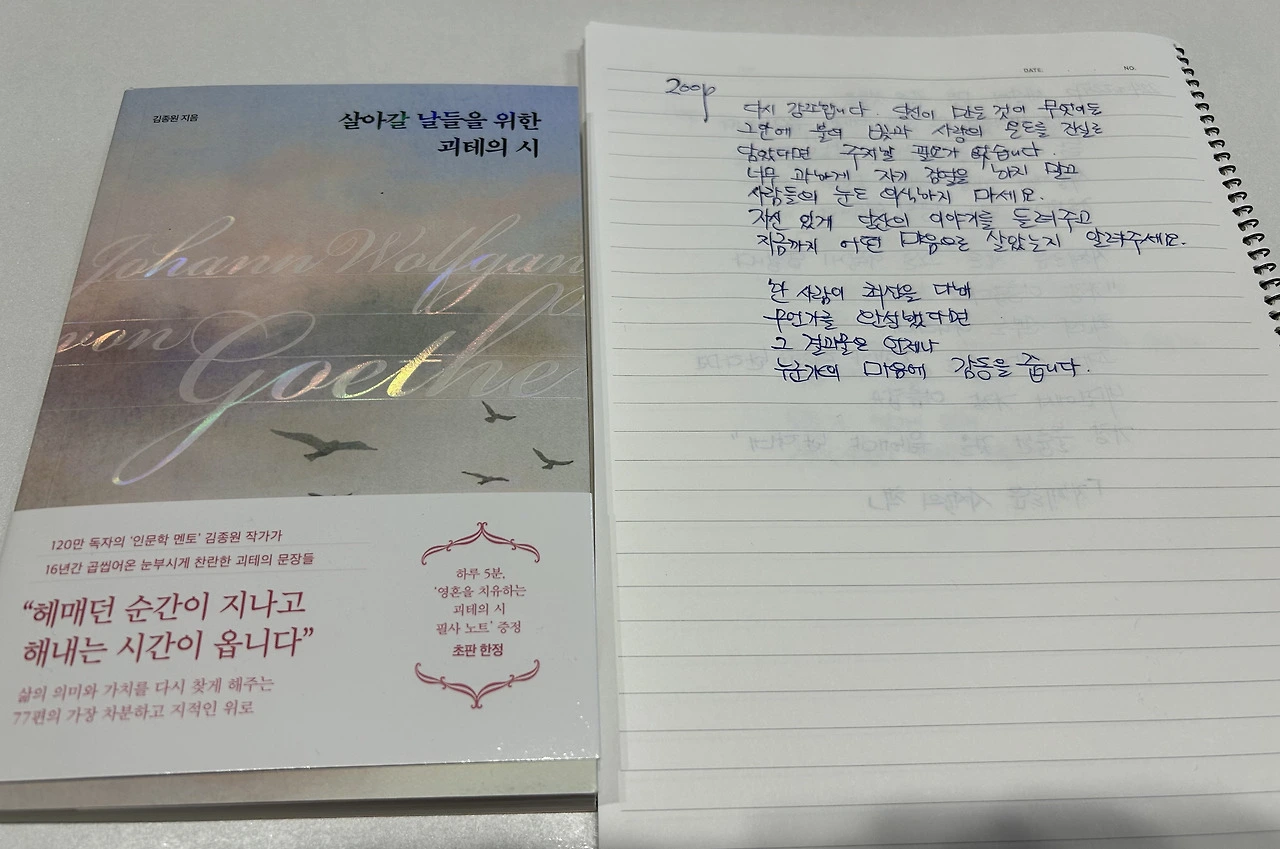 김종원 지음
살아갈 날들을 위한
괴테의 시
Johann Wolfgang
von Goethe
120만 독자의 '인문학 멘토' 김종원 작가가
16년간 곱씹어온 눈부시게 찬란한 괴테의 문장들
“헤매던 순간이 지나고
해내는 시간이 옵니다”
삶의 의미와 가치를 다시 찾게 해주는
77편의 가장 차분하고 지적인 위로
하루 5분,
'영혼을 치유하는
괴테의 시
필사 노트' 증정
초판 한정
DATE.
NO.
200p
다시 강조합니다. 당신이 만든 것이 무엇이든
그 안에 불어 빛과 사랑의 온도를 진실로
담았다면 주저할 필요가 없습니다.
너무 과하게 자기 검열을 하지 말고
사람들의 눈도 의식하지 마세요.
자신 있게 당신의 이야기를 들려주고
지금까지 어떤 마음으로 살았는지 알려주세요.
한 사람이 최선을 다해
무언가를 완성했다면
그 결과물은 언제나
누군가의 마음에 감동을 줍니다.